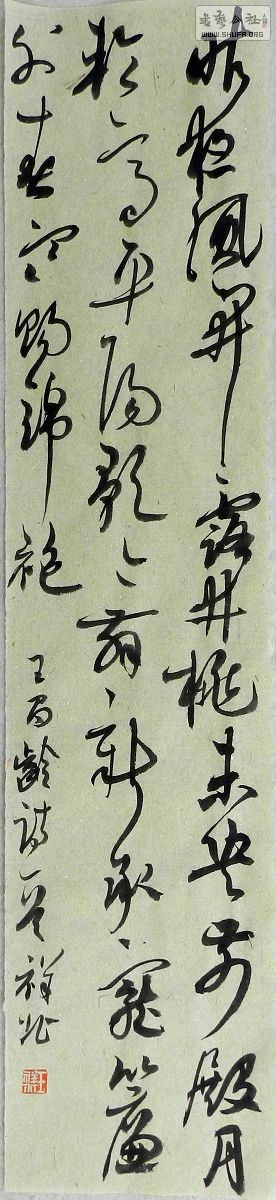 昨夜風開露井桃未央前殿月
輪高平陽歌舞新承寵簾
外春寒賜錦袍 王昌齡詩一首 祥
书艺公社
WWW.SHUFA.ORG